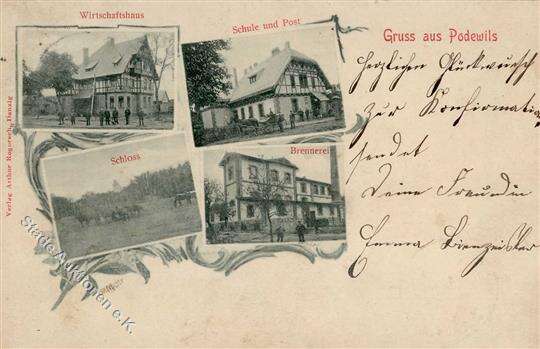 Wirtschaftshaus
Schule und Post
Gruss aus Podewils
Schloss
Brennerei
Verlag Arthur Rogorsch, Danzig
Herzlichen Glückwunsch
zur Konfirmation
sendet
Deine Freundin
Emma
Stade Auktionen e.K.